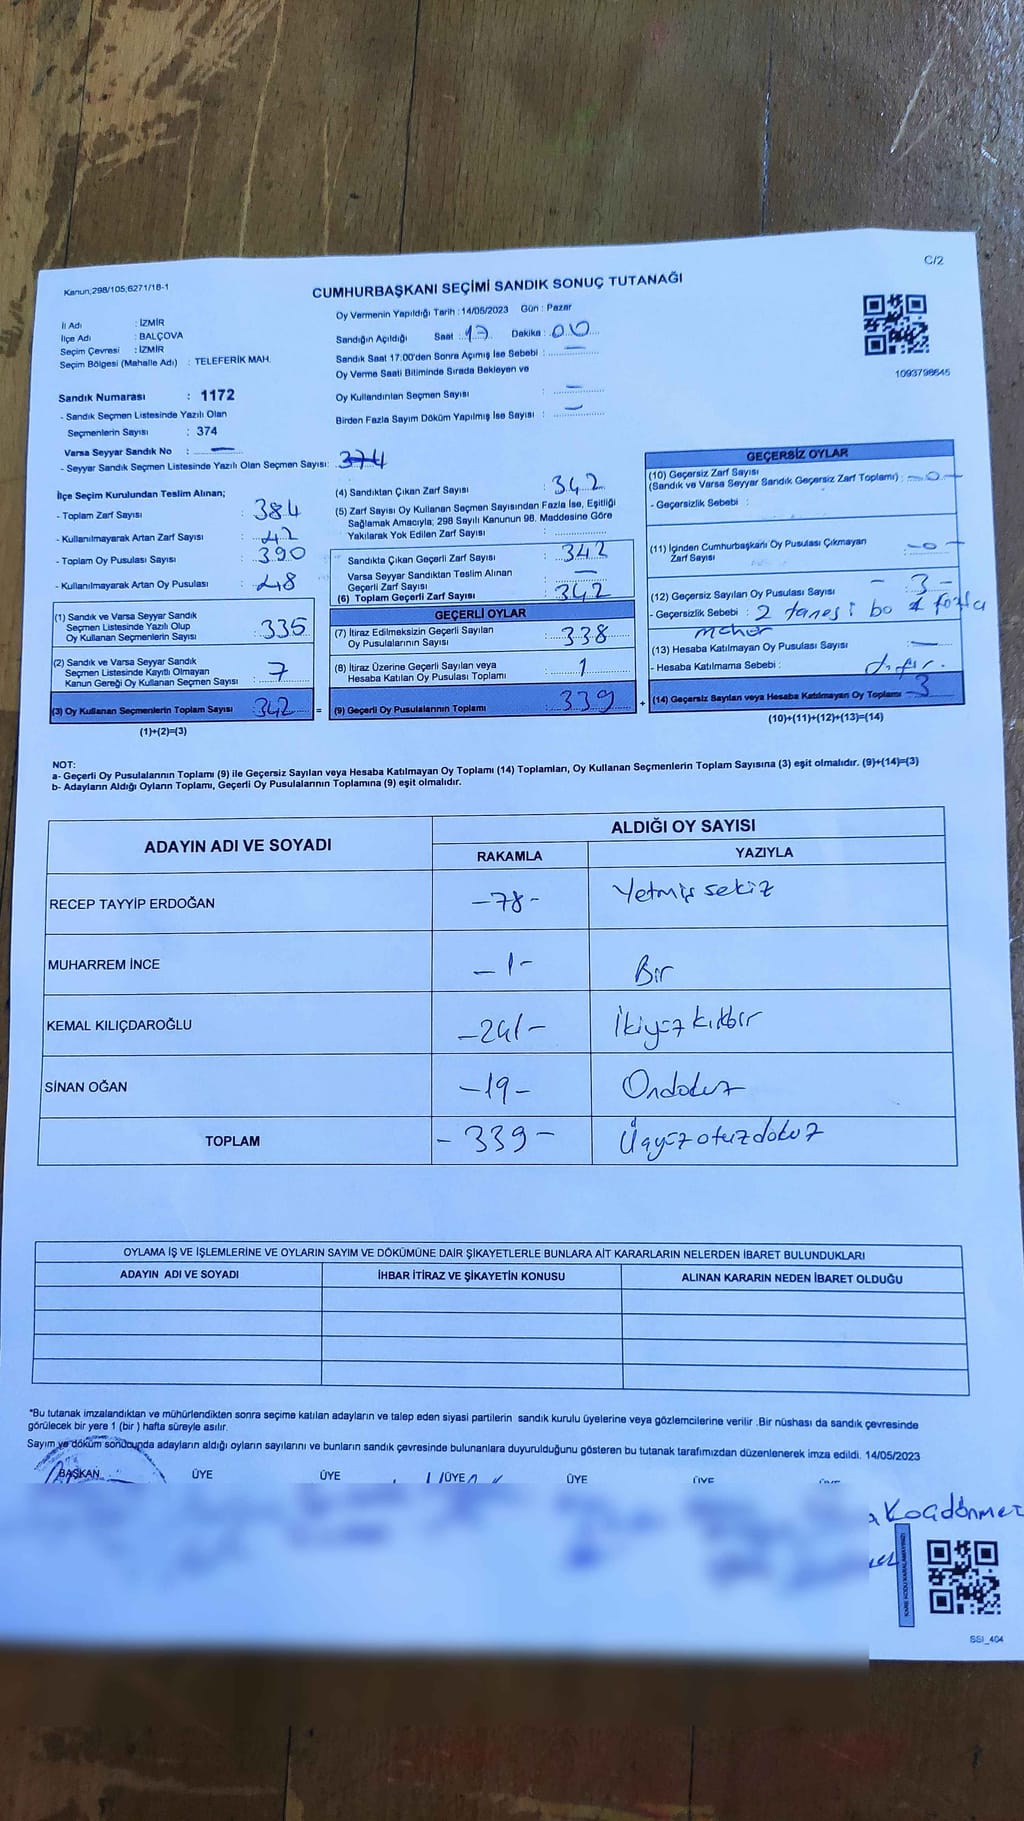 C/2
Kanun;298/105;6271/18-1
CUMHURBAŞKANI SEÇİMİ SANDIK SONUÇ TUTANAĞI
İl Adı : İZMİR
İlçe Adı : BALÇOVA
Seçim Çevresi : İZMİR
Seçim Bölgesi (Mahalle Adı) : TELEFERİK MAH.
Oy Vermenin Yapıldığı Tarih : 14/05/2023 Gün : Pazar
Sandığın Açıldığı Saat : 17 Dakika : 00
Sandık Saat 17:00'den Sonra Açımış İse Sebebi : —
Oy Verme Saati Bitiminde Sırada Bekleyen ve
Oy Kullandırılan Seçmen Sayısı : —
Birden Fazla Sayım Döküm Yapılmış İse Sayısı : —
1093798645
Sandık Numarası : 1172
- Sandık Seçmen Listesinde Yazılı Olan
Seçmenlerin Sayısı : 374
Varsa Seyyar Sandık No : —
- Seyyar Sandık Seçmen Listesinde Yazılı Olan Seçmen Sayısı: 374
İlçe Seçim Kurulundan Teslim Alınan;
- Toplam Zarf Sayısı : 384
- Kullanılmayarak Artan Zarf Sayısı : 42
- Toplam Oy Pusulası Sayısı : 390
- Kullanılmayarak Artan Oy Pusulası : 48
(1) Sandık ve Varsa Seyyar Sandık
Seçmen Listesinde Yazılı Olup
Oy Kullanan Seçmenlerin Sayısı : 335
(2) Sandık ve Varsa Seyyar Sandık
Seçmen Listesinde Kayıtlı Olmayan
Kanun Gereği Oy Kullanan Seçmen Sayısı : 7
(3) Oy Kullanan Seçmenlerin Toplam Sayısı 342 =
(1)+(2)=(3)
(4) Sandıktan Çıkan Zarf Sayısı : 342
(5) Zarf Sayısı Oy Kullanan Seçmen Sayısından Fazla İse, Eşitliği
Sağlamak Amacıyla; 298 Sayılı Kanunun 98. Maddesine Göre
Yakılarak Yok Edilen Zarf Sayısı :
Sandıkta Çıkan Geçerli Zarf Sayısı : 342
Varsa Seyyar Sandıktan Teslim Alınan
Geçerli Zarf Sayısı : —
(6) Toplam Geçerli Zarf Sayısı : 342
GEÇERLİ OYLAR
(7) İtiraz Edilmeksizin Geçerli Sayılan
Oy Pusulalarının Sayısı : 338
(8) İtiraz Üzerine Geçerli Sayılan veya
Hesaba Katılan Oy Pusulası Toplamı : 1
(9) Geçerli Oy Pusulalarının Toplamı : 339 +
GEÇERSİZ OYLAR
(10) Geçersiz Zarf Sayısı
(Sandık ve Varsa Seyyar Sandık Geçersiz Zarf Toplamı) : —0—
- Geçersizlik Sebebi :
(11) İçinden Cumhurbaşkanı Oy Pusulası Çıkmayan
Zarf Sayısı : —0—
(12) Geçersiz Sayılan Oy Pusulası Sayısı : - 3 -
- Geçersizlik Sebebi : 2 tanesi bo 1 fazla
mühür
(13) Hesaba Katılmayan Oy Pusulası Sayısı : —
- Hesaba Katılmama Sebebi :
(14) Geçersiz Sayılan veya Hesaba Katılmayan Oy Toplamı 3
(10)+(11)+(12)+(13)=(14)
NOT:
a- Geçerli Oy Pusulalarının Toplamı (9) ile Geçersiz Sayılan veya Hesaba Katılmayan Oy Toplamı (14) Toplamları, Oy Kullanan Seçmenlerin Toplam Sayısına (3) eşit olmalıdır. (9)+(14)=(3)
b- Adayların Aldığı Oyların Toplamı, Geçerli Oy Pusulalarının Toplamına (9) eşit olmalıdır.
ADAYIN ADI VE SOYADI ALDIĞI OY SAYISI
RAKAMLA YAZIYLA
RECEP TAYYİP ERDOĞAN -78- Yetmiş sekiz
MUHARREM İNCE -1- Bir
KEMAL KILIÇDAROĞLU -241- İkiyüz kırkbir
SİNAN OĞAN -19- Ondokuz
TOPLAM -339- Üçyüz otuz dokuz
OYLAMA İŞ VE İŞLEMLERİNE VE OYLARIN SAYIM VE DÖKÜMÜNE DAİR ŞİKAYETLERLE BUNLARA AİT KARARLARIN NELERDEN İBARET BULUNDUKLARI
ADAYIN ADI VE SOYADI İHBAR İTİRAZ VE ŞİKAYETİN KONUSU ALINAN KARARIN NEDEN İBARET OLDUĞU
*Bu tutanak imzalandıktan ve mühürlendikten sonra seçime katılan adayların ve talep eden siyasi partilerin sandık kurulu üyelerine veya gözlemcilerine verilir .Bir nüshası da sandık çevresinde
görülecek bir yere 1 (bir ) hafta süreyle asılır.
Sayım ve döküm sonucunda adayların aldığı oyların sayılarını ve bunların sandık çevresinde bulunanlara duyurulduğunu gösteren bu tutanak tarafımızdan düzenlenerek imza edildi. 14/05/2023
BAŞKAN ÜYE ÜYE ÜYE ÜYE ÜYE ÜYE
Kocadönmez
SSI_404